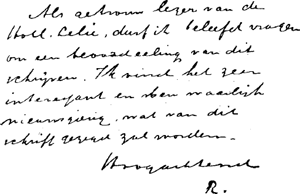 Als getrouw lezer van de
Holl. Lelie, durf ik beleefd vragen
om een beoordeeling van dit
schrijven. Ik vind het zeer
interessant en ben waarlijk
nieuwsgierig, wat van dit
schrift gezegd zal worden.
Hoogachtend
R.